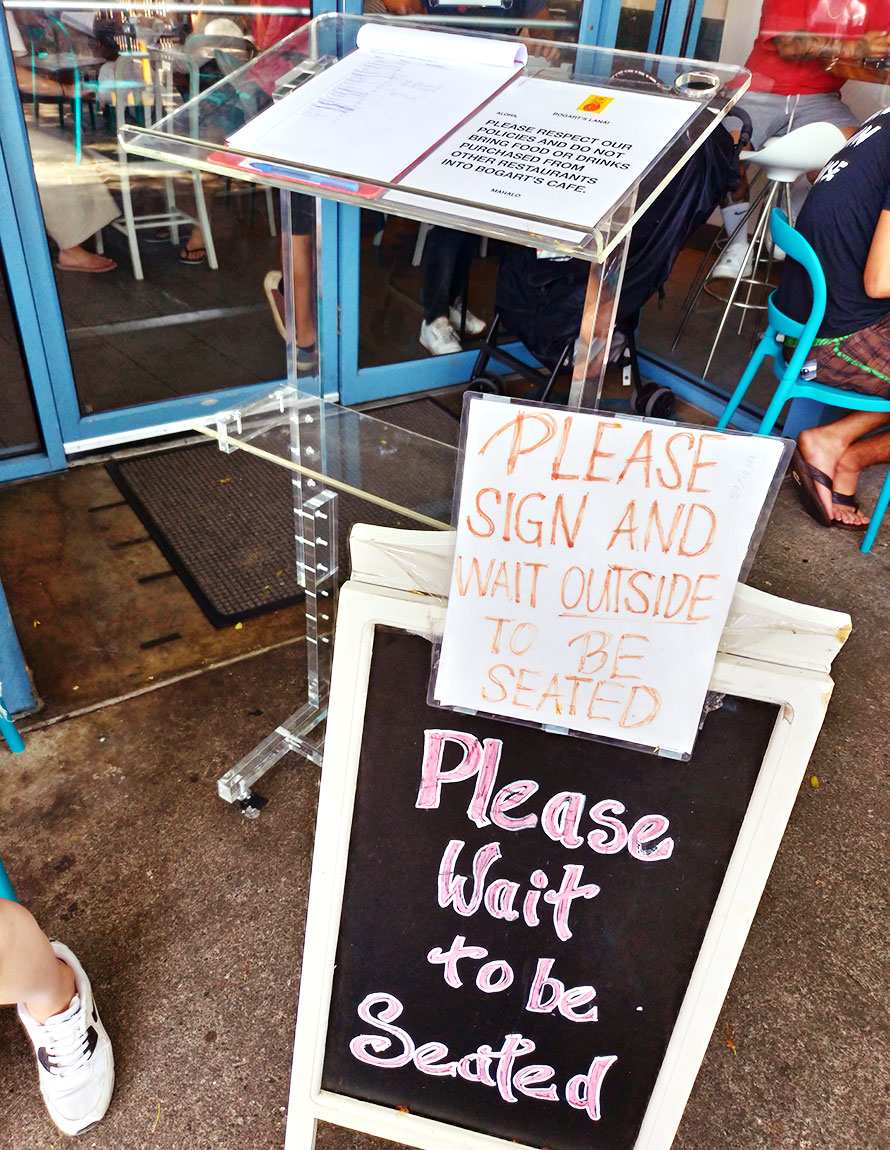 ALOHA, BOGART'S LANAI
PLEASE RESPECT OUR
POLICIES AND DO NOT
BRING FOOD OR DRINKS
PURCHASED FROM
OTHER RESTAURANTS
INTO BOGART'S CAFE.
MAHALO
PLEASE
SIGN AND
WAIT OUTSIDE
TO BE
SEATED
Please
Wait
to be
Seated